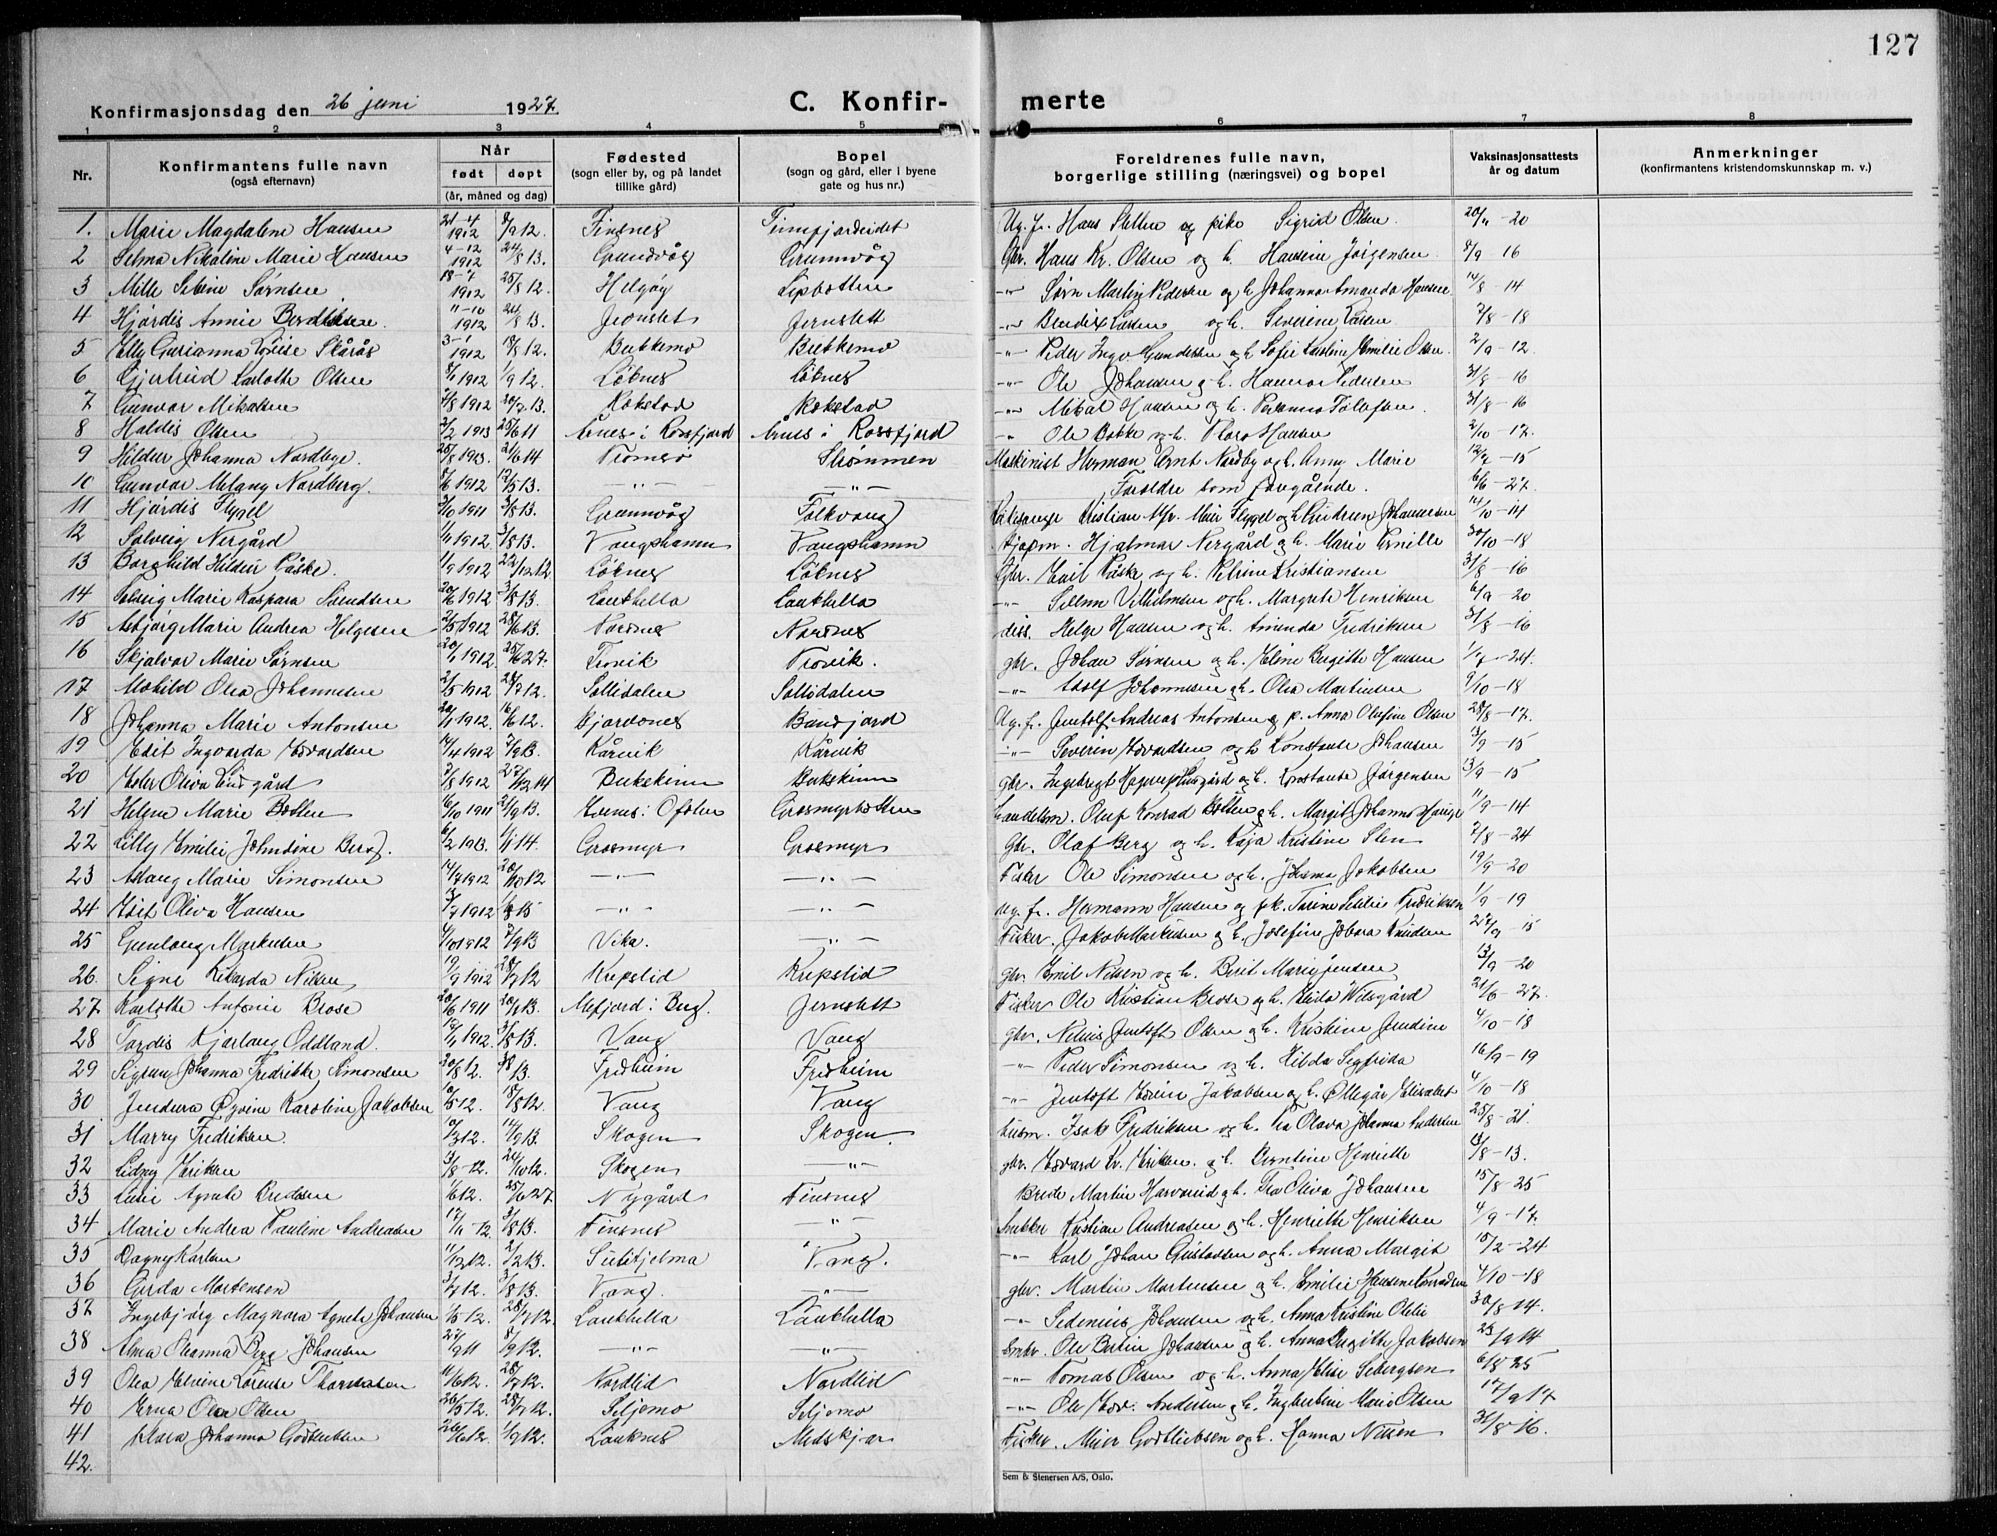 127
Konfirmasjonsdag den 26 juni 1927. C. Konfirmerte
1 2 3 4 5 6 7 8
Nr. Konfirmantens fulle navn (også efternavn) Når født døpt (år, måned og dag) Fødested (sogn eller by, og på landet tillike gård) Bopel (sogn og gård, eller i byene gate og hus nr.) Foreldrenes fulle navn, borgerlige stilling (næringsvei) og bopel Vaksinasjonsattests år og datum Anmerkninger (konfirmantens kristendomskunnskap m. v.)
1. Marie Magdalene Hansen 21-4 1912 8/9 12 Finsnes Finnfjordeidet Ug. fr. Hans Sletten og pike Sigrid Olsen 20/11 - 20
2 Selma Nikoline Marie Hansen 4-12 1912 24/8 13. Grundvåg Grunnvåg Gbr. Hans Kr. Olsen og h. Hansine Jørgensen 8/9 16
3 Mille Sørnsen 18-7 1912 25/8 12. Helgøy Lysbotten -"- Sørn Martin Pedersen og h. Johanna Amanda Hansen 14/8 - 14
4 Hjørdis Annie 11-10 1912 24/8 13. Jernslet Jernslett -"- og h. Severine 7/8 - 18
5 Elly Gurianna Lovise Skårås 3-1 1912 18/8 12. Bukkemo Bukkemo -"- Peder Ingv. Gundersen og h. Sofie Emilie Olsen. 2/9 - 12
6 Gjertrud Karlotte Olsen 8/1 1912 1/9 12. Løknes Løknes -"- Ole Johansen og h. Hanna Pedersen 31/8 - 16
7 Gunvor Mikalsen 7/8 1912 20/7 13. Røkstad Røkstad -"- Mikal Hansen og h. Tolofsen. 31/8 - 16
8 Haldis Olsen 2/2 1913 Årnes i Rossfjord Årnes i Rossfjord -"- Ole Bakke og h. Hansen 2/10 - 17.
9 Hildur Johanna Nordbye 1913. 21/6 14 Tromsø Strømmen Maskinist Herman Arnt Nordby og h. Anny Marie 12/7 - 15
10 Gunvor Melany Nordberg. 1912 17/5 13. -"- -"- Foreldre som foregående. 6/6 - 27
11 Hjørdis Flygel 3/10 1911 3/8 13. Grunnvåg Folkvang Kristian Flygel og h. Gudrun Johannesen 14/10 - 14
12 Solveig Nergård 1/11 1912. 3/8 13. Vangshamn Vangshamn Hjalmar Nergård og h. Marie Pernille 30/10 - 18
13 Borghild Hildur Påske. 1/9 1912 22/12 12 Løknes Løknes Gbr. Emil Påske og h. Petrine Kristiansen 31/8 - 16
14 Solveig Marie Kaspara 20/6 1912 3/8 13. Laukhella Laukhella -"- Vilhelmsen og h. Margrete Henriksen 6/9 - 20
15 Asbjørg Marie Andrea Helgesen 2/5 1912 28/6 13. Nordnes Nordnes diss. Helge Hansen og h. Amanda Fredriksen 31/8 - 16
16 Skjalvor Marie Sørnsen 20/1 1912. 25/6 27. Trovik Trovik. gbr. Johan Sørnsen og h. Eline Birgitte Hansen 1/7 - 24.
17 Makild Olea Johannesen 2/5 1912 28/7 12. Sollidalen Sollidalen -"- Adolf Johannesen og h. Olea Martinsen 9/10 - 18
18 Johanna Marie Antonsen 20/1 1912. 16/6 12. Gjøvdnes Bundjord Ug. f. Jentolf Andreas Antonsen og p. Anna Olufine Olsen 28/8 - 17.
19 Edit Ingvarda Edvardsen 14/4 1912 7/9 13. Kårvik Kårvik -"- Severin Edvardsen og h. Konstanse Johansen 13/9 - 15
20 Ester Oliva Lundgård 7/8 1912 27/12 14 Bukskinn Bukskinn gbr. Ingebrigt Lundgård og h. Konstanse Jørgensen 13/9 - 15
21 Helga Marie Botten 16/10 1911 21/9 13. Evenes i Ofoten Grasmyrbotten Handelsm. Oluf Konrad Botten og h. Margit Johanna 11/9 - 14
22 Lilly Emilie Johndine Berg. 6/2 1913. 1/1 14. Grasmyr Grasmyr gbr. Olaf Berg og h. Kaja Kristine Sten 7/8 - 24
23 Aslaug Marie Simonsen 14/7 1912 20/10 12 -"- -"- Fisker Ole Simonsen og h. Johanna Jakobsen 19/9 - 20
24 Edit Oliva Hansen 13/7 1912 -"- -"- Ug. fr. Hermann Hansen og pk. Torine Fredriksen 1/9 - 19
25 Gunlaug Markusen 4/10 1912 7/9 13 Vika. -"- Fisker. Jakob Markusen og h. Josefine Jobara Knudsen 27/9 15
26. Signe Rikarda Nilsen 19/9 1912 28/7 12 Krepslid Krepslid gbr. Emil Nilsen og h. Berit Marie Jensen 13/9 - 20
27 Karlotte Antonie Brose 20/6 1911 20/7 13. Mefjord i Berg. Jernslett Fisker Ole Kristian Brose og h. Heida Wilsgård 21/6 - 27.
28 Tordis Kjærlaug Oddland. 12/1 1912. 3/8 13. Vang Vang gbr. Nelius Jentoft Olsen og h. Kristine Jendine 4/10 - 18
29 Sigrun Johanna Fredrikke Simonsen 20/8 12. Fredheim Fredheim -"- Peder Simonsen og h. Hilda Sigfrida 16/9 - 19
30 Jendura Øyvine Karoline Jakobsen 10/5 12. 18/8 12. Vang Vang -"- Jentoft Edvin Jakobsen og h. Ollegår Elisabet 4/10 - 18
31 Marry Fredriksen. 10/3 12. 14/9 13. Skogen Skogen. Isak Fredriksen og h. Olava Johanna Andersen 25/8 - 21.
32 Eriksen 13/8 - 12. 20/10 12. Skogen -"- gbr. Edvard Kr. Eriksen og h. Berntine Henriette 13/8 - 13.
33 Lusie Agnete 1/6 12. 25/6 27. Nygård Finsnes Martin og h. Oliva Johansen 15/8 - 25
34 Marie Andrea Pauline Andreassen 17/11 - 12. 3/8 13. Finsnes -"- Snekker Kristian Andreasen og h. Henriette Henriksen 4/9 - 17.
35 Dagny Karlsen 11/12 12. 2/2 13. Sulitjelma Vang. -"- Karl Johan Gustavsen og h. Anna Margit 15/2 - 24
36 Gerda Mortensen 3/7 12. 3/8 13. Vang. -"- gbr. Martin Mortensen og h. Emilie Hansine Konradsen 4/10 - 18
37 Ingebjørg Magnora Agnete Johansen 1/5 12. 28/7 12. Laukhella Laukhella -"- Sedenius Johansen og h. Anna Kristine 30/8 14.
38 Alma Johanna Berg Johansen 27/9 11 8/9 12. -"- -"- Ole Bertin Johansen og h. Anna Birgitte Jakobsen 23/9 14
39 Olea Elvine Lorense Thomassen 11/6 12. 28/7 12. Nordlid Nordlid -"- Tomas Olsen og h. Anna Elise Sebergsen 6/8 25
40 Erna Olea Olsen 26/5 12. 28/7 12. Seljemo Seljemo -"- Ole Edv. Andersen og h. Ingbertine Marie Olsen 17/9 17
41 Klara Johanna Godtliebsen 26/6 12. 1/9 12. Lauknes Medskjær Fisker. Meier Godtliebsen og h. Hanna Nilsen 31/8 - 16.
42.
Sem & Stenersen A/S, Oslo.